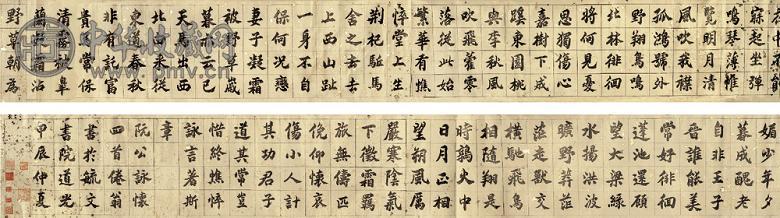 中不能
寐起坐彈
鳴琴薄帷
覽明月清
風吹我襟
孤鴻號外
野翔鳥鳴
北林徘徊
將何見憂
思獨傷心
嘉樹下成
蹊東園桃
與李秋風
吹飛藿零
落從此始
繁華有憔
悴堂上生
荊杞驅馬
舍之去去
上西山趾
一身不自
保何況戀
妻子凝霜
被野草歲
暮亦云已
天馬出西
北由來從
東道春秋
非有託富
貴焉常保
清露被皋
蘭凝霜沾
野草朝為
媚少年夕
暮成醜老
自非王子
晉誰能美
常好徘徊
蓬池還顧
望大梁綠
水揚洪波
曠野莽茫
茫走獸交
橫馳飛鳥
相隨翔是
時鶉火中
日月正相
望朔風厲
嚴寒陰氣
下微霜羈
旅無儔匹
俛仰懷哀
傷小人計
其功君子
道其常豈
惜終憔悴
詠言著斯
章
阮公詠懷
四首倦翁
書於毓文
書院道光
甲辰仲夏
www.pmv.cn